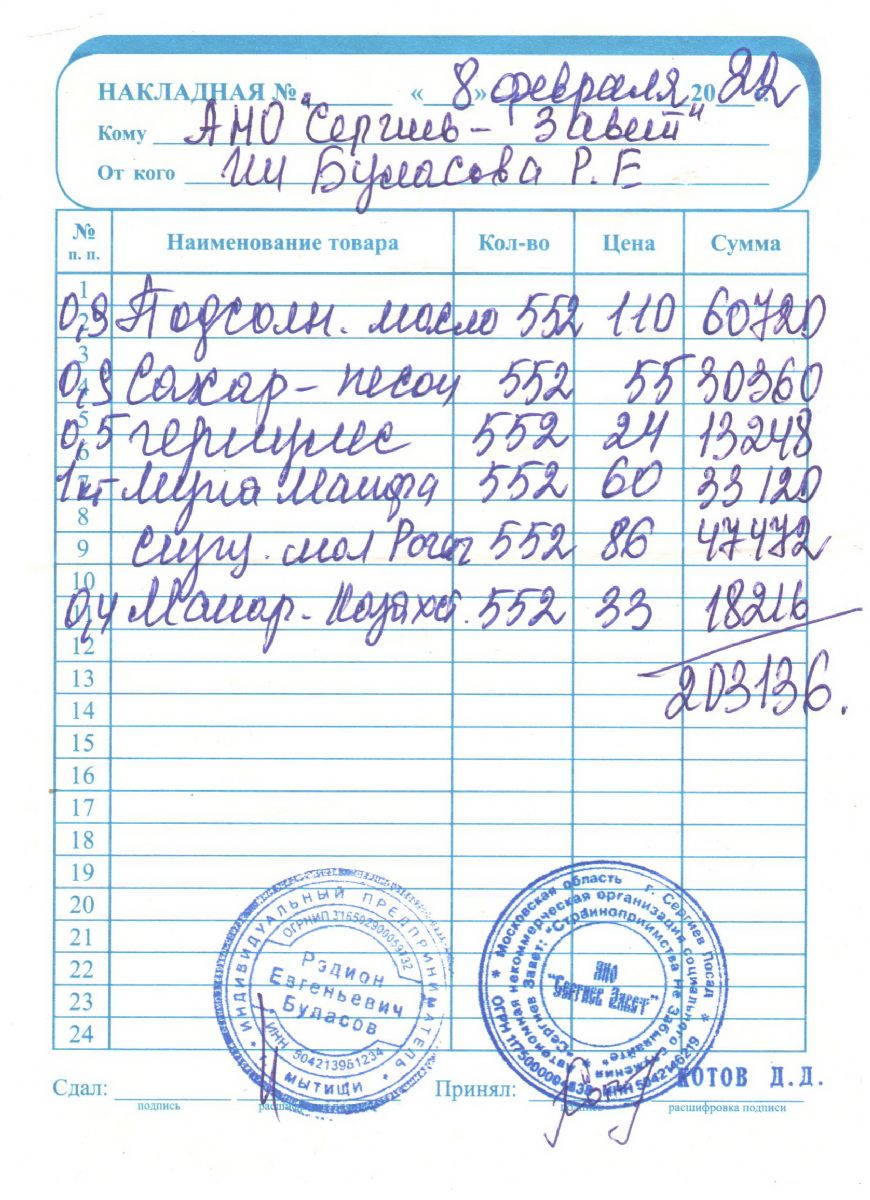 НАКЛАДНАЯ № «8» февраля 2022
Кому АНО "Сергиев- Завет"
От кого ИП Буласова Р.Е
№ п. п. Наименование товара Кол-во Цена Сумма
1
0,9 Подсолн. масло 552 110 60720
2
3
0,9 Сахар-песок 552 55 30360
4
5
0,5 геркулес 552 24 13248
6
1кг Мука Макфа 552 60 33120
7
8
9 сгущ. мол Рогач 552 86 47472
10
0,4 Макар-Казахст. 552 33 18216
12
13 203136.
14
15
16
17
18
19
20
21
22
23
24
ИНДИВИДУАЛЬНЫЙ ПРЕДПРИНИМАТЕЛЬ
ОГРНИП 316502900059732
Рэдион
Евгеньевич
Буласов
ИНН 504213951234
МЫТИЩИ
Московская область г. Сергиев Посад
Автономная некоммерческая организация социального служения
"Сергиев Завет: "Странноприимства Не Забывайте"
АНО
"Сергиев Завет"
Сдал: Принял: КОТОВ Д.Д.
подпись подпись расшифровка подписи